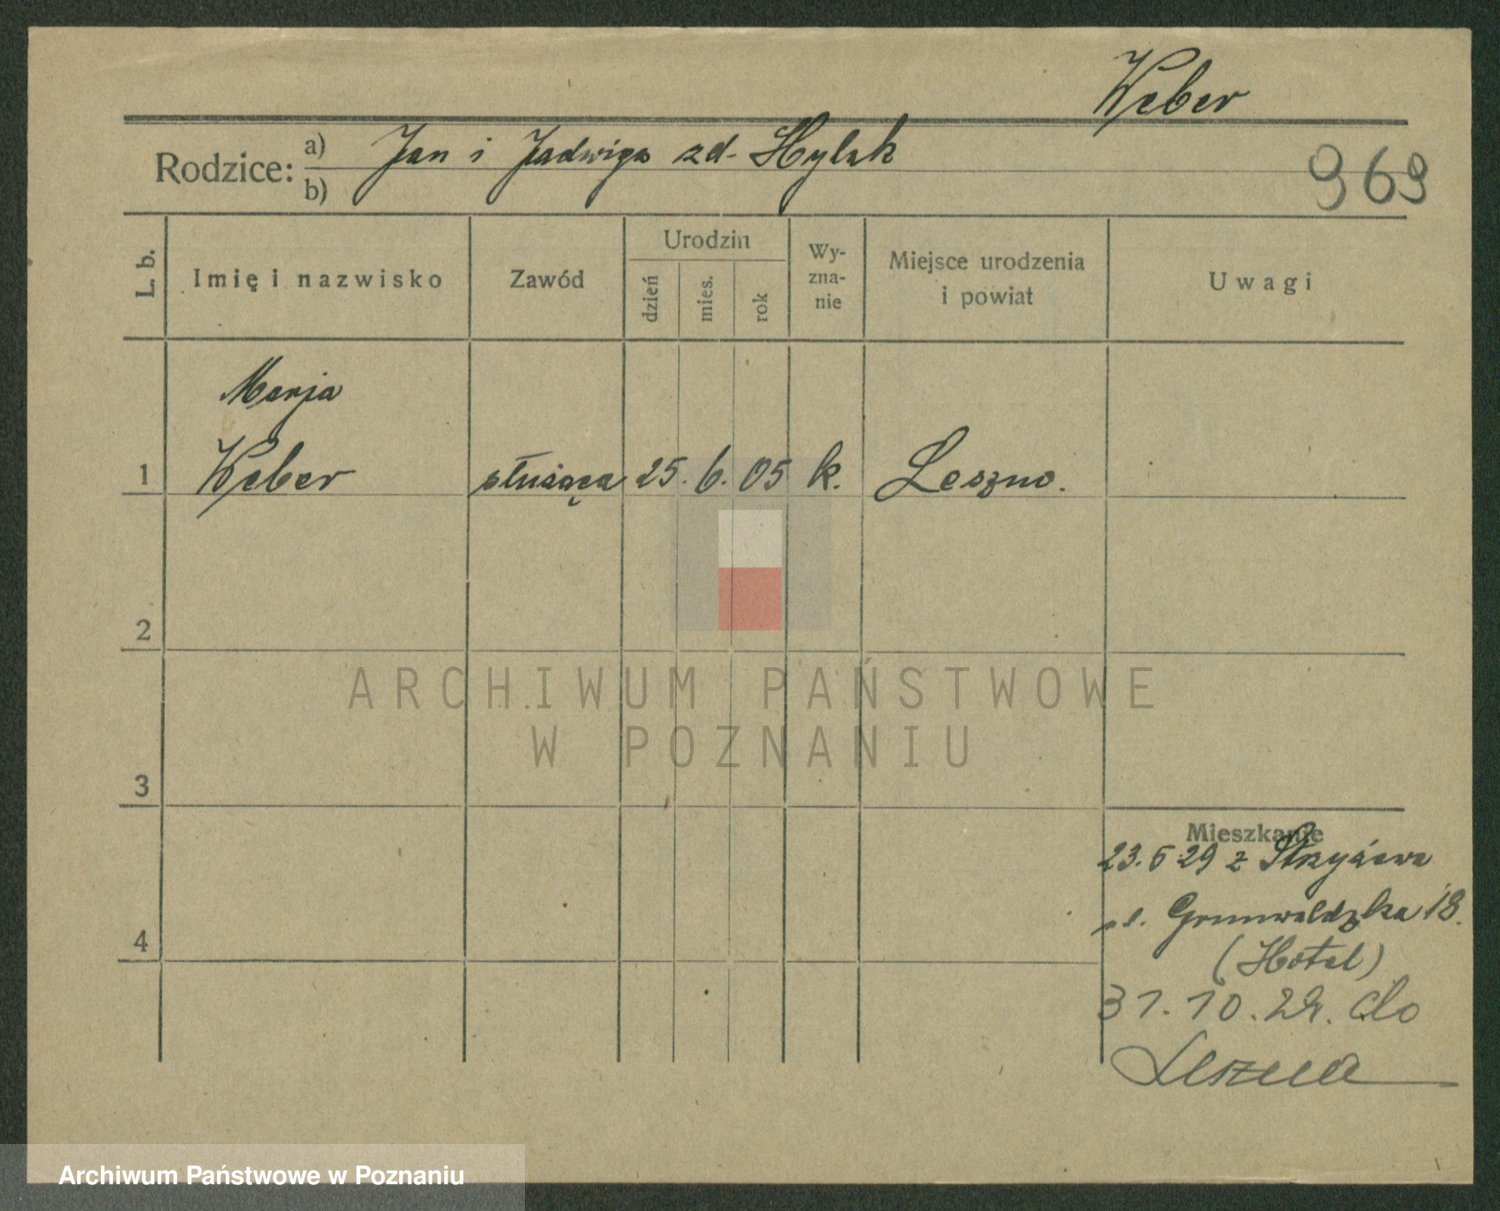 Weber
Rodzice: a) Jan i Jadwiga zd. Hylak
b)
969
L. b.
Imię i nazwisko
Zawód
Urodzin
dzień
mies.
rok
Wy-
zna-
nie
Miejsce urodzenia
i powiat
Uwagi
Marja
1 Weber służąca 25. 6. 05 k. Leszno.
2
3
4
Mieszkanie
23.5 29 z
ul. Grunwaldzka 18.
(Hotel)
31.10.29. do
Leszna
ARCHIWUM PAŃSTWOWE
W POZNANIU
Archiwum Państwowe w Poznaniu